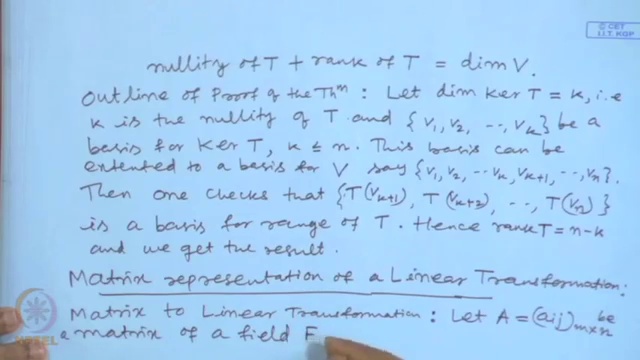 © CET
I.I.T. KGP
nullity of T + rank of T = dim V.
Outline of Proof of the Thm : Let dim Ker T = k, i.e
k is the nullity of T and {v1, v2, ..., vk} be a
basis for Ker T, k ≤ n. This basis can be
extented to a basis for V say {v1, v2, ... vk, vk+1, ..., vn}.
Then one checks that {T(vk+1), T(vk+2), ..., T(vn)}
is a basis for range of T. Hence rank T = n-k
and we get the result.
Matrix representation of a Linear Transformation:
Matrix to Linear Transformation : Let A = (aij)m×n be
a matrix of a field F